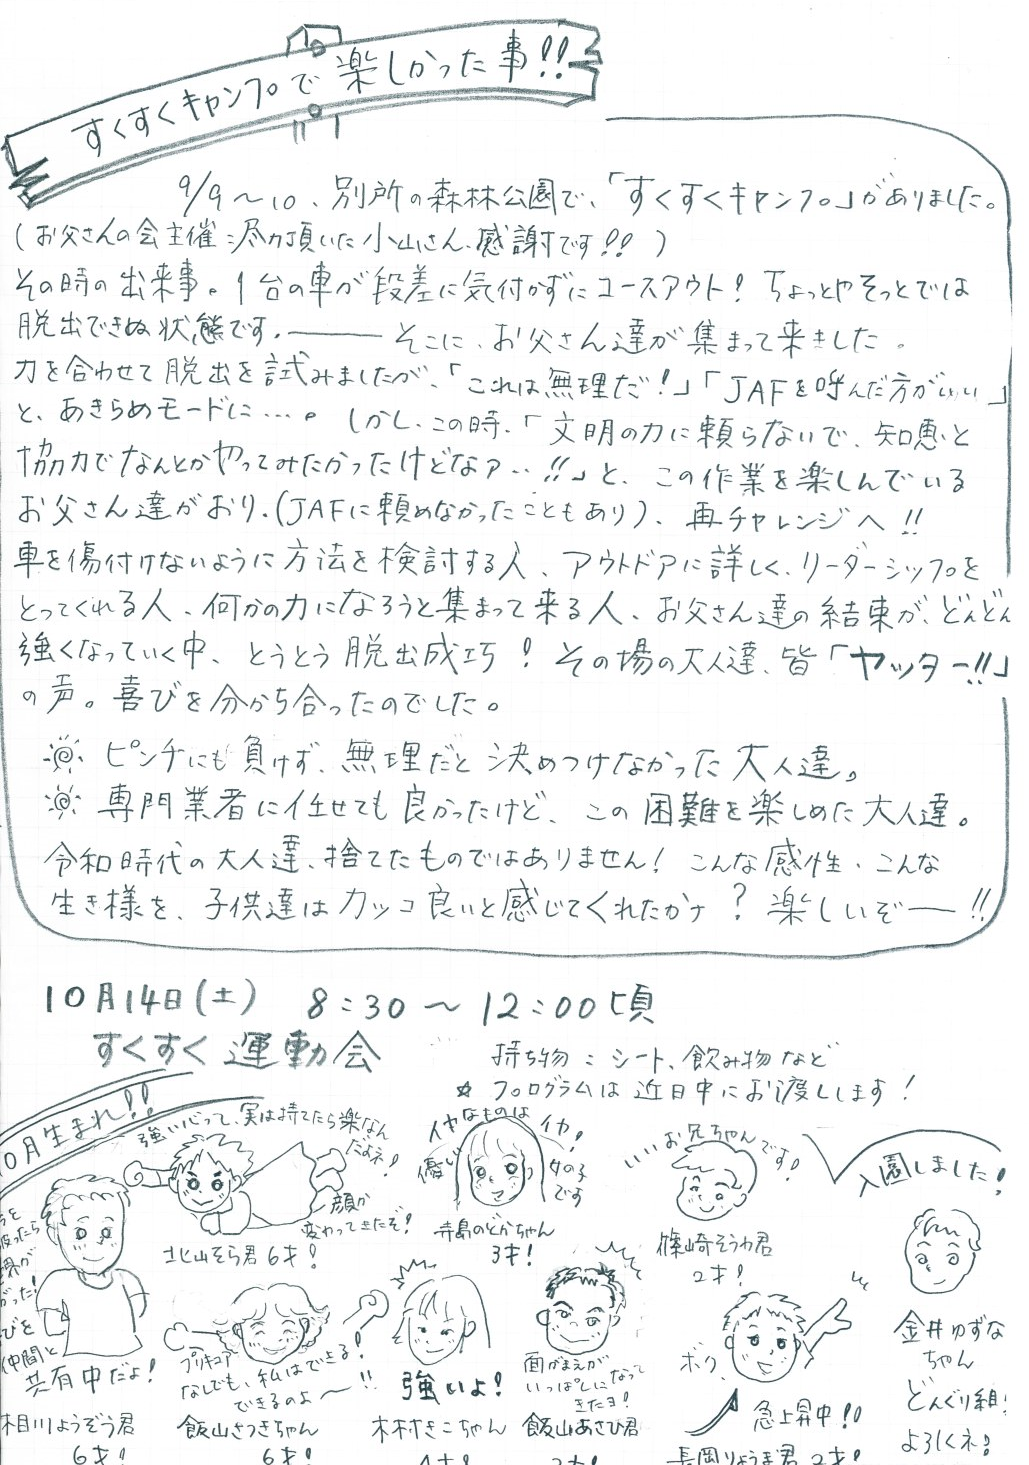 すくすくキャンプで楽しかった事!!
9/9～10、別所の森林公園で、「すくすくキャンプ」がありました。
(お父さんの会主催;尽力頂いた小山さん、感謝です!!)
その時の出来事。1台の車が段差に気付かずにコースアウト!ちょっとやそっとでは
脱出できぬ状態です。――そこに、お父さん達が集まって来きました。
力を合わせて脱出を試みましたが、「これは無理だ!」「JAFを呼んだ方がいい」
と、あきらめモードに…。しかし、この時、「文明の力に頼らないで、知恵と
協力でなんとかやってみたかったけどなァ‥!!」と、この作業を楽しんでいる
お父さん達がおり、(JAFに頼めなかったこともあり)、再チャレンジへ!!
車を傷付けないように方法を検討する人、アウトドアに詳しく、リーダーシップを
とってくれる人、何かの力になろうと集まって来る人、お父さん達の結束が、どんどん
強くなっていく中、とうとう脱出成功!その場の大人達、皆「ヤッター!!」
の声。喜びを分かち合ったのでした。
ピンチにも負けず、無理だと決めつけなかった大人達。
専門業者に任せても良かったけど、この困難を楽しめた大人達。
令和時代の大人達、捨てたものではありません!こんな感性、こんな
生き様を、子供達はカッコ良いと感じてくれたかナ?楽しいぞ―!!
10月14日(土) 8:30～12:00頃
すくすく運動会
持ち物:シート、飲み物など
☆プログラムは近日中にお渡しします!
10月生まれ!!
仲間と
共有中だよ!
相川ようぞう君
6才!
強い心って、実は持てたら楽なん
だよネ!
顔が
変わってきたぞ!
北山そら君 6才!
イヤなものはイヤ!
優しい
女の子
です
寺島のどかちゃん
3才!
お兄ちゃんです!
篠崎そうわ君
2才!
プリキュア
なしでも、私はできる!
できるのよ～!!
飯山さつきちゃん
6才!
強いよ!
木村きこちゃん
4才!
面がまえが
いっぱしになって
きたヨ!
飯山あさひ君
ボク、
急上昇中!!
長岡りょうま君 2才!
入園しました!
金井ゆずな
ちゃん
どんぐり組!
よろしくネ!